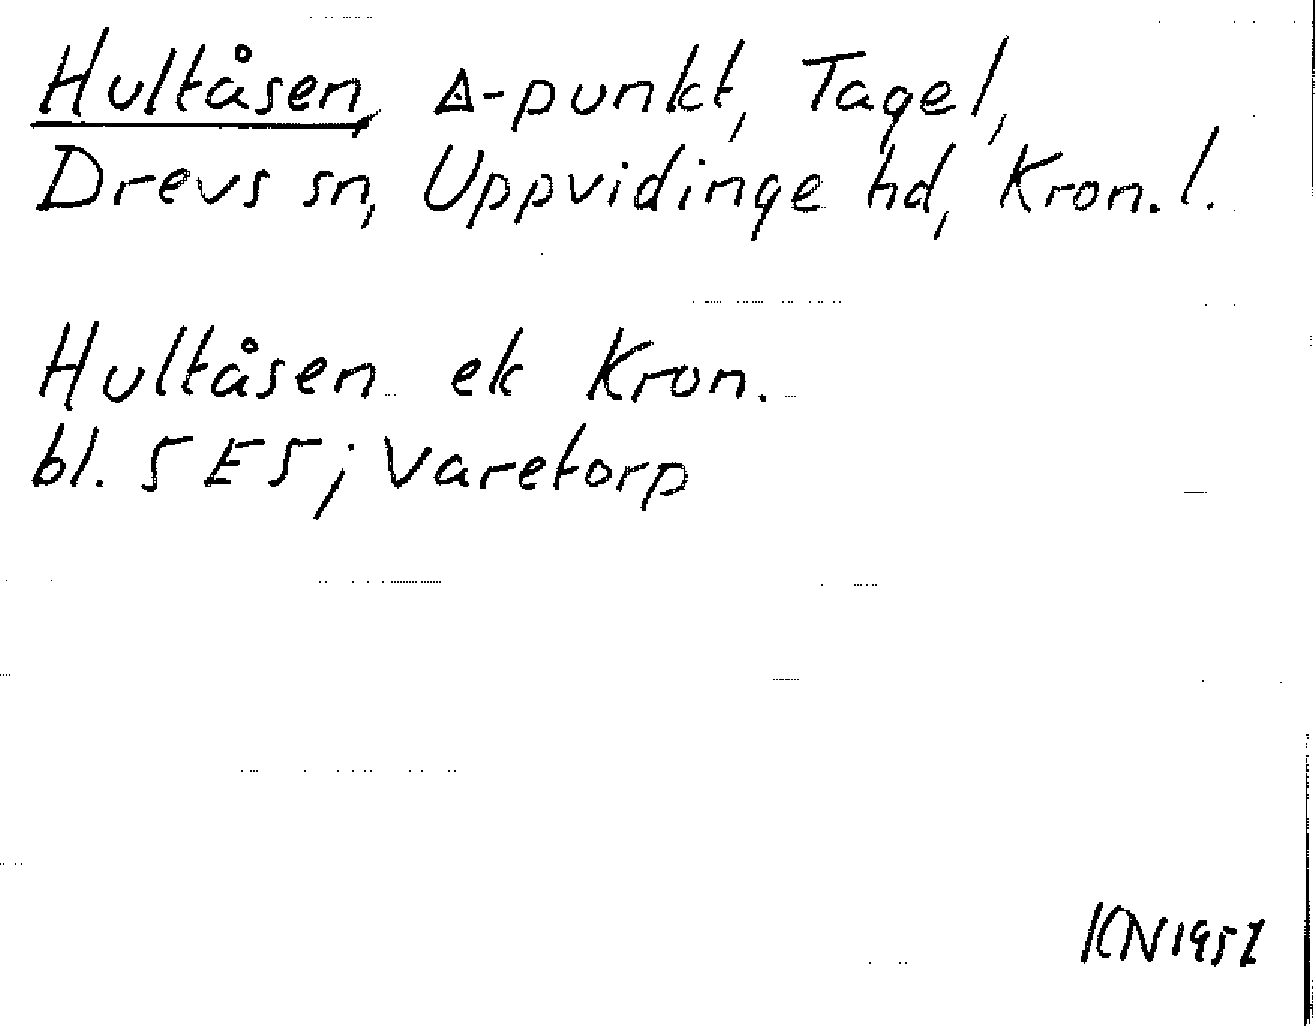 Hultåsen, ◬-punkt, Tagel,
Drevs sn, Uppvidinge hd, Kron. l.
Hultåsen ek Kron.
bl. 5 E 5; Varetorp
KN 1957